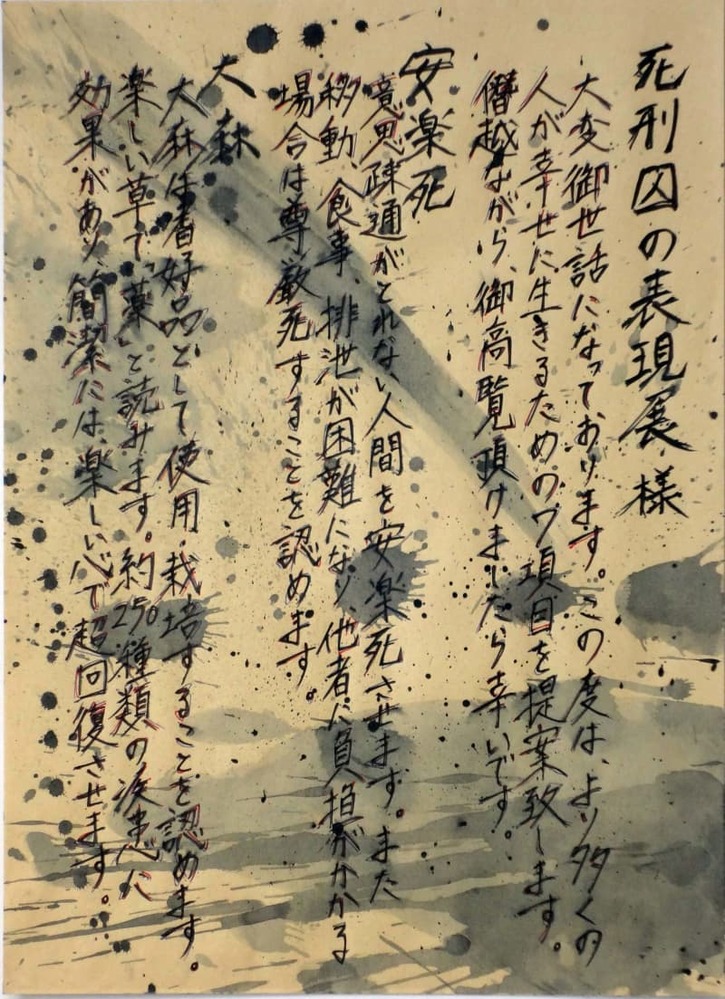 死刑囚の表現展 様
大変御世話になっております。この度は、より多くの
人が幸せに生きるための7項目を提案致します。
僭越ながら、御高覧頂けましたら幸いです。
安楽死
意思疎通がとれない人間を安楽死させます。また
移動、食事、排泄が困難になり、他者に負担がかかる
場合は尊厳死することを認めます。
大麻
大麻は嗜好品として使用・栽培することを認めます。
楽しい草で「薬」と読みます。約250種類の疾患に
効果があり、簡潔には、楽しい心で超回復させます。